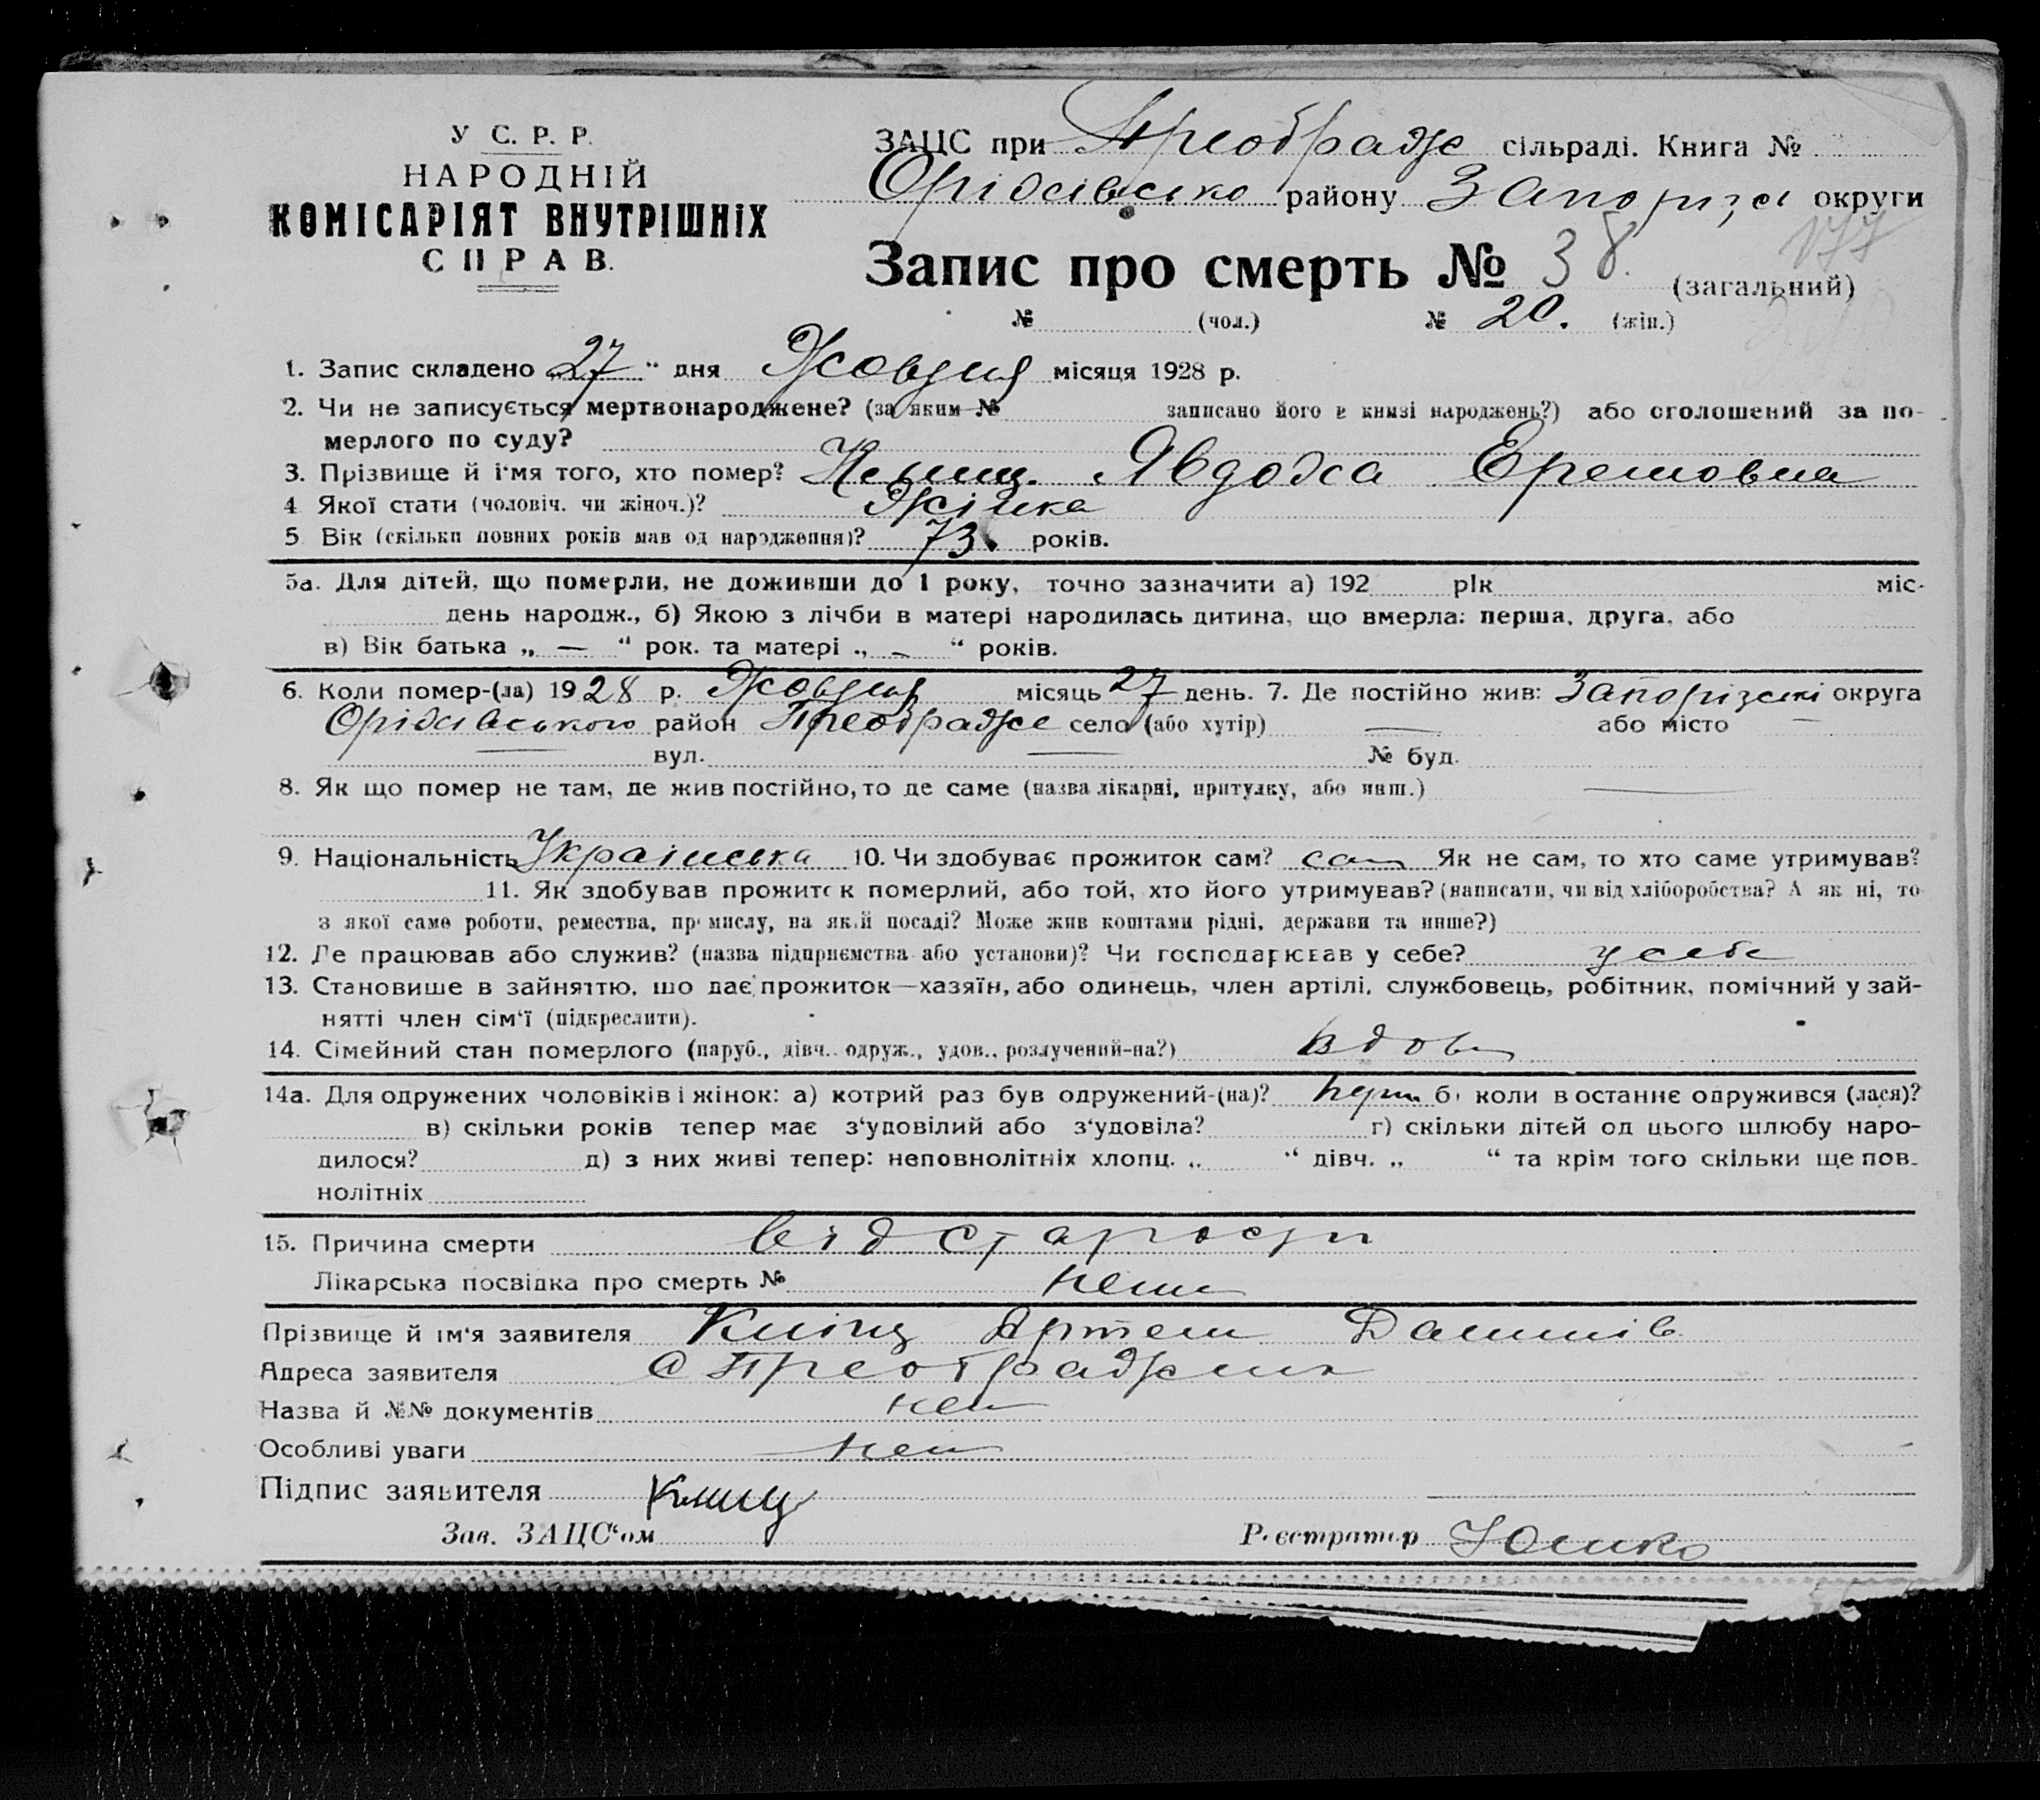 У С. Р. Р.
НАРОДНІЙ
КОМІСАРІЯТ ВНУТРІШНІХ
СПРАВ.
ЗАЦС при Преображе сільраді. Книга №
Оріхівсько району Запоріз округи
177
Запис про смерть № 38. (загальний)
№ (чол.) № 20. (жін.)
1. Запис складено „27“ дня Жовтня місяця 1928 р.
2. Чи не записується мертвонароджене? (за яким № записано його в книзі народжень?) або оголошений за по-
мерлого по суду?
3. Прізвище й ім'я того, хто помер? Явдоха
4. Якої стати (чоловіч. чи жіноч.)? Жінка
5. Вік (скільки повних років мав од народження)? 73 років.
5а. Для дітей, що померли, не доживши до 1 року, точно зазначити а) 192 рік міс.
день народж., б) Якою з лічби в матері народилась дитина, що вмерла: перша, друга, або
в) Вік батька „ — “ рок. та матері „ — “ років.
6. Коли помер-(ла) 1928 р. Жовтня місяць 27 день. 7. Де постійно жив: Запорізькі округа
Оріхівського район Преображе село (або хутір) — або місто —
— вул. — № буд.
8. Як що помер не там, де жив постійно, то де саме (назва лікарні, притулку, або инш.) —
9. Національність Українська 10. Чи здобуває прожиток сам? сам Як не сам, то хто саме утримував?
11. Як здобував прожиток померлий, або той, хто його утримував? (написати, чи від хліборобства? А як ні, то
з якої саме роботи, ремества, промислу, на якій посаді? Може жив коштами рідні, держави та инше?)
12. Де працював або служив? (назва підприємства або установи)? Чи господарював у себе? у себе
13. Становище в зайняттю, що дає прожиток—хазяїн, або одинець, член артілі, службовець, робітник, помічний у зай-
нятті член сім'ї (підкреслити).
14. Сімейний стан померлого (паруб., дівч., одруж., удов., розлучений-на?) вдова
14а. Для одружених чоловіків і жінок: а) котрий раз був одружений-(на)? перш б) коли востаннє одружився (лася)?
в) скільки років тепер має з'удовілий або з'удовіла? г) скільки дітей од цього шлюбу наро-
дилося? д) з них живі тепер: неповнолітніх хлопц. „ “ дівч. „ “ та крім того скільки ще пов-
нолітніх
15. Причина смерти від старости
Лікарська посвідка про смерть № нема
Прізвище й ім'я заявителя Книш Артем Данилів
Адреса заявителя с Преображина
Назва й №№ документів нем
Особливі уваги нем
Підпис заявителя Книш
Зав. ЗАЦС'ом Реєстратор Юшко